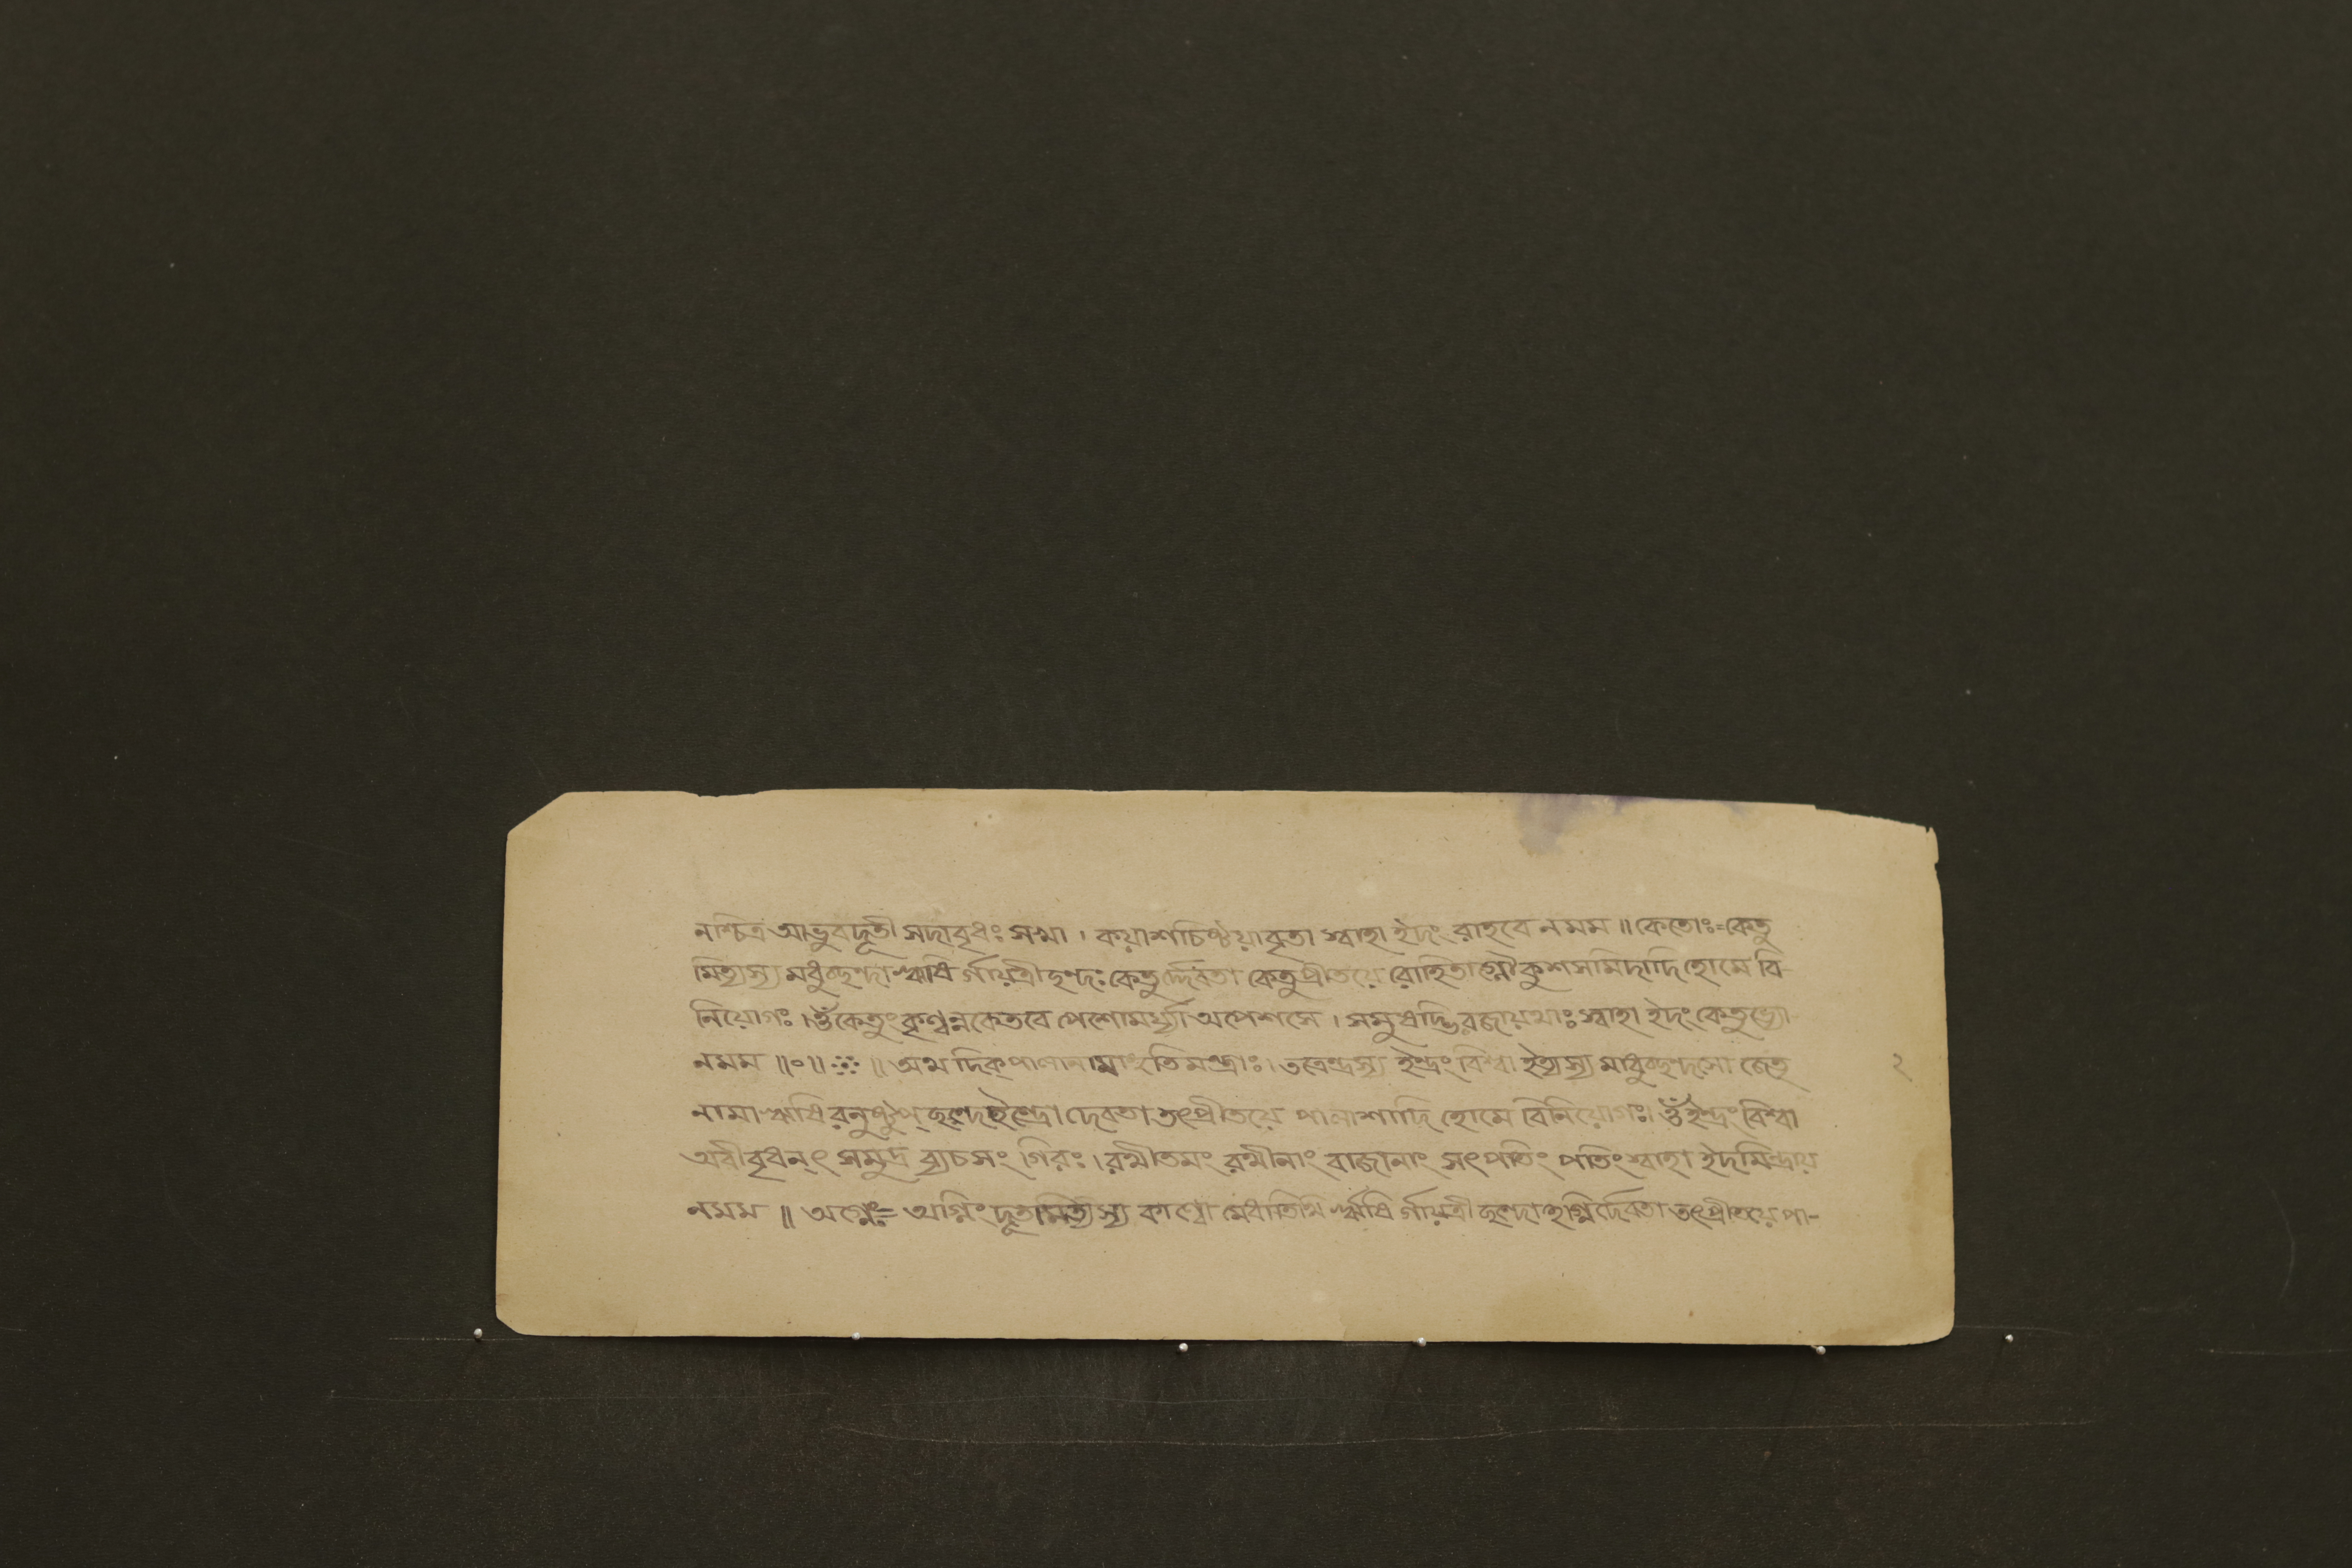 নশ্চিত্র আভুবদূতী সদাবৃধঃ সখা । কয়াশচিষ্ঠয়াবৃতা স্বাহা ইদং রাহবে নমম ॥ কেতোঃ = কেতু
মিত্যস্য মধুচ্ছন্দা ঋষি র্গায়ত্রী ছন্দঃ কেতুর্দ্দেবতা কেতুপ্রীতয়ে রোহিতাগ্নৌ কুশসমিদাদি হোমে বি-
নিয়োগঃ । ওঁ কেতুং কৃণ্বন্নকেতবে পেশোমর্য্যা অপেশসে । সমুষদ্ভিরজায়থাঃ স্বাহা ইদং কেতুভ্যো
নমম ॥ ০ ॥ ⁘ ॥ অথ দিক্‌পালানামাহুতি মন্ত্রাঃ । তত্রেন্দ্রস্য ইন্দ্রং বিশ্বা ইত্যস্য মাধুচ্ছন্দসো জেতৃ
২
নামা ঋষি রনুষ্টুপ্ ছন্দ ইন্দ্রো দেবতা তৎপ্রীতয়ে পালাশাদি হোমে বিনিয়োগঃ । ওঁ ইন্দ্রং বিশ্বা
অবীবৃধন্ৎ সমুদ্র ব্যচসং গিরঃ । রথীতমং রথীনাং বাজানাং সৎপতিং পতিং স্বাহা ইদমিন্দ্রায়
নমম ॥ অগ্নেঃ = অগ্নিং দূতামিত্যস্য কাণ্বো মেধাতিথি ঋষি র্গায়ত্রী ছন্দোঽগ্নির্দেবতা তৎপ্রীতয়ে পা-